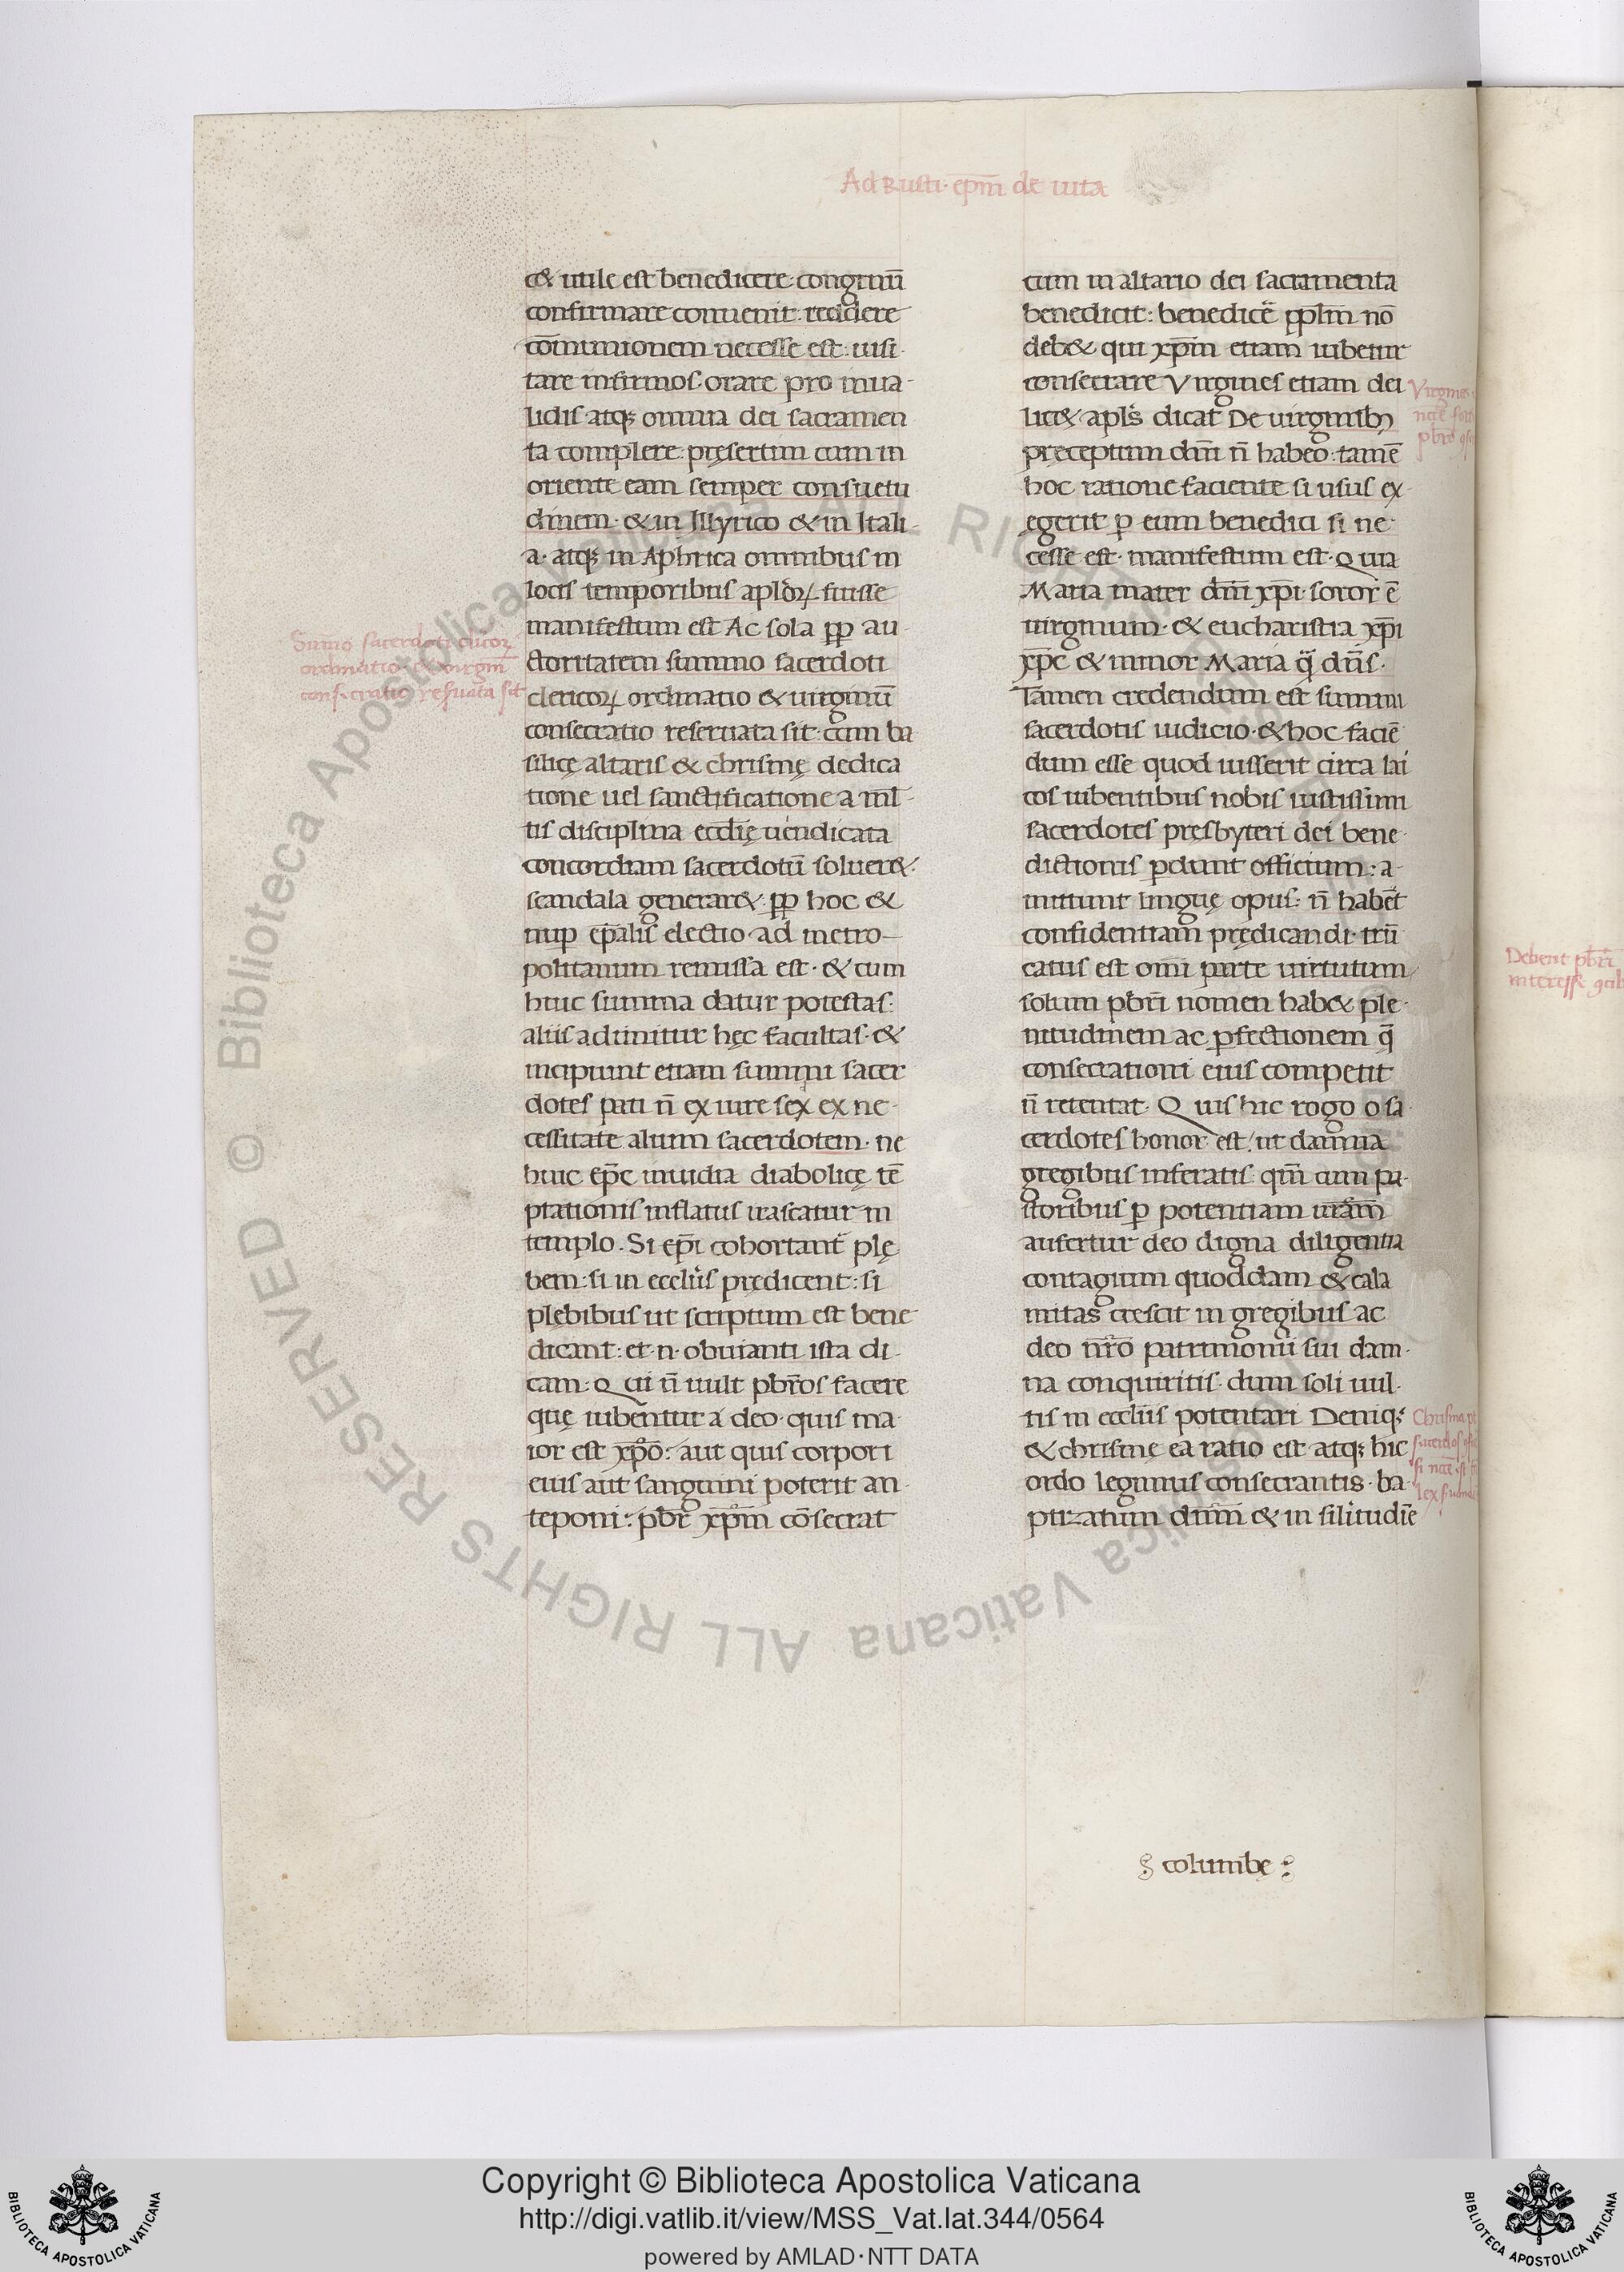 Ad Rusti· ep̄m de uita
c& utile est benedicere· congruū
confirmare conuenit· reddere
cōmunionem necesse est: uisi·
tare infirmos· orare pro inua-
lidis· atq; omnia dei sacramen
ta complere: pręsertim cum in
oriente eam semper consuetu
dinem· & in Illyrico & in Itali-
a· atq; in Aphrica omnibus in
locis temporibus apl'oꝝ fuisse
manifestum est Ac sola ꝓp au-
ctoritatem summo sacerdoti
clericoꝝ ordinatio & uirginū
consecratio reseruata sit: cum ba
silicę altaris & chrismę dedica
tione uel sanctificatione a ml̄-
tis disciplina eccl̄ię uendicata
concordiam sacerdotū soluer&·
scandala generar&· ꝓp hoc &
nuꝑ ep̄alis electio ad metro-
politanum remissa est· & cum
huic summa datur potestas:
aliis adimitur hęc facultas· &
incipiunt etiam summi sacer
dotes pati n̄ ex iure sex ex ne-
cessitate alium sacerdotem· ne
huic ep̄c inuidia diabolicę tē
ptationis inflatus irascatur in
templo. Si ep̄i cohortant̄ plę
bem: si in eccl'iis prędicent: si
plębibus ut scriptum est bene
dicant: et· n· obuianti ista di-
cam· Qui n̄ uult pb̄ros facere
quę iubentur a deo· quis ma
ior est xp̄o: aut quis corpori
eius aut sanguini poterit an·
teponi: pb̄r xp̄m cōsecrat
Sumo sacerdoti clicoꝝ
ordinatio & uirgin̄
consecratio res̄uata sit
cum in altario dei sacramenta
benedicit: benedicē ppl̄m nō
deb& qui xp̄m etiam iubetur
consecrare Virgines etiam dei
lic& apl's dicat De uirginibꝫ
pręceptum dn̄i n̄ habeo· tamē
hoc ratione faciente si usus ex-
egerit ꝑ eum benedici si ne·
cesse est· manifestum est· Quia
Maria mater dn̄i xp̄i· soror ē
uirginum· & eucharistia xp̄i
xp̄c & minor Maria q̄ dn̄s·
Tamen credendum est summi
sacerdotis iudicio· & hoc faciē
dum esse quod iusserit circa lai
cos iubentibus nobis iustissimi
sacerdotes pręsbyteri dei bene·
dictionis ꝑdunt officium: a-
mittunt linguę opus: n̄ habēt
confidentiam prędicandi· trū
catus est om̄i parte uirtutum
solum pb̄ri nomen hab& ple·
nitudinem ac ꝑfectionem q̄
consecrationi eius competit
n̄ retentat· Quis hic rogo o sa·
cerdotes honor est/ ut damna
gregibus inferatis· qm̄ cum pa·
storibus ꝑ potentiam ur̄am
aufertur deo digna diligentia
contagium quoddam & cala
mitas crescit in gregibus ac
deo nr̄o patrimonii sui dam·
na conquiritis· dum soli uul·
tis in eccl'iis potentari Deniq;
& chrismę ea ratio est atq; hic
ordo legimus consecrantis· ba·
ptizatum dnm̄ & in sil'itudīe
columbę
Debent pb̄ri
interesse